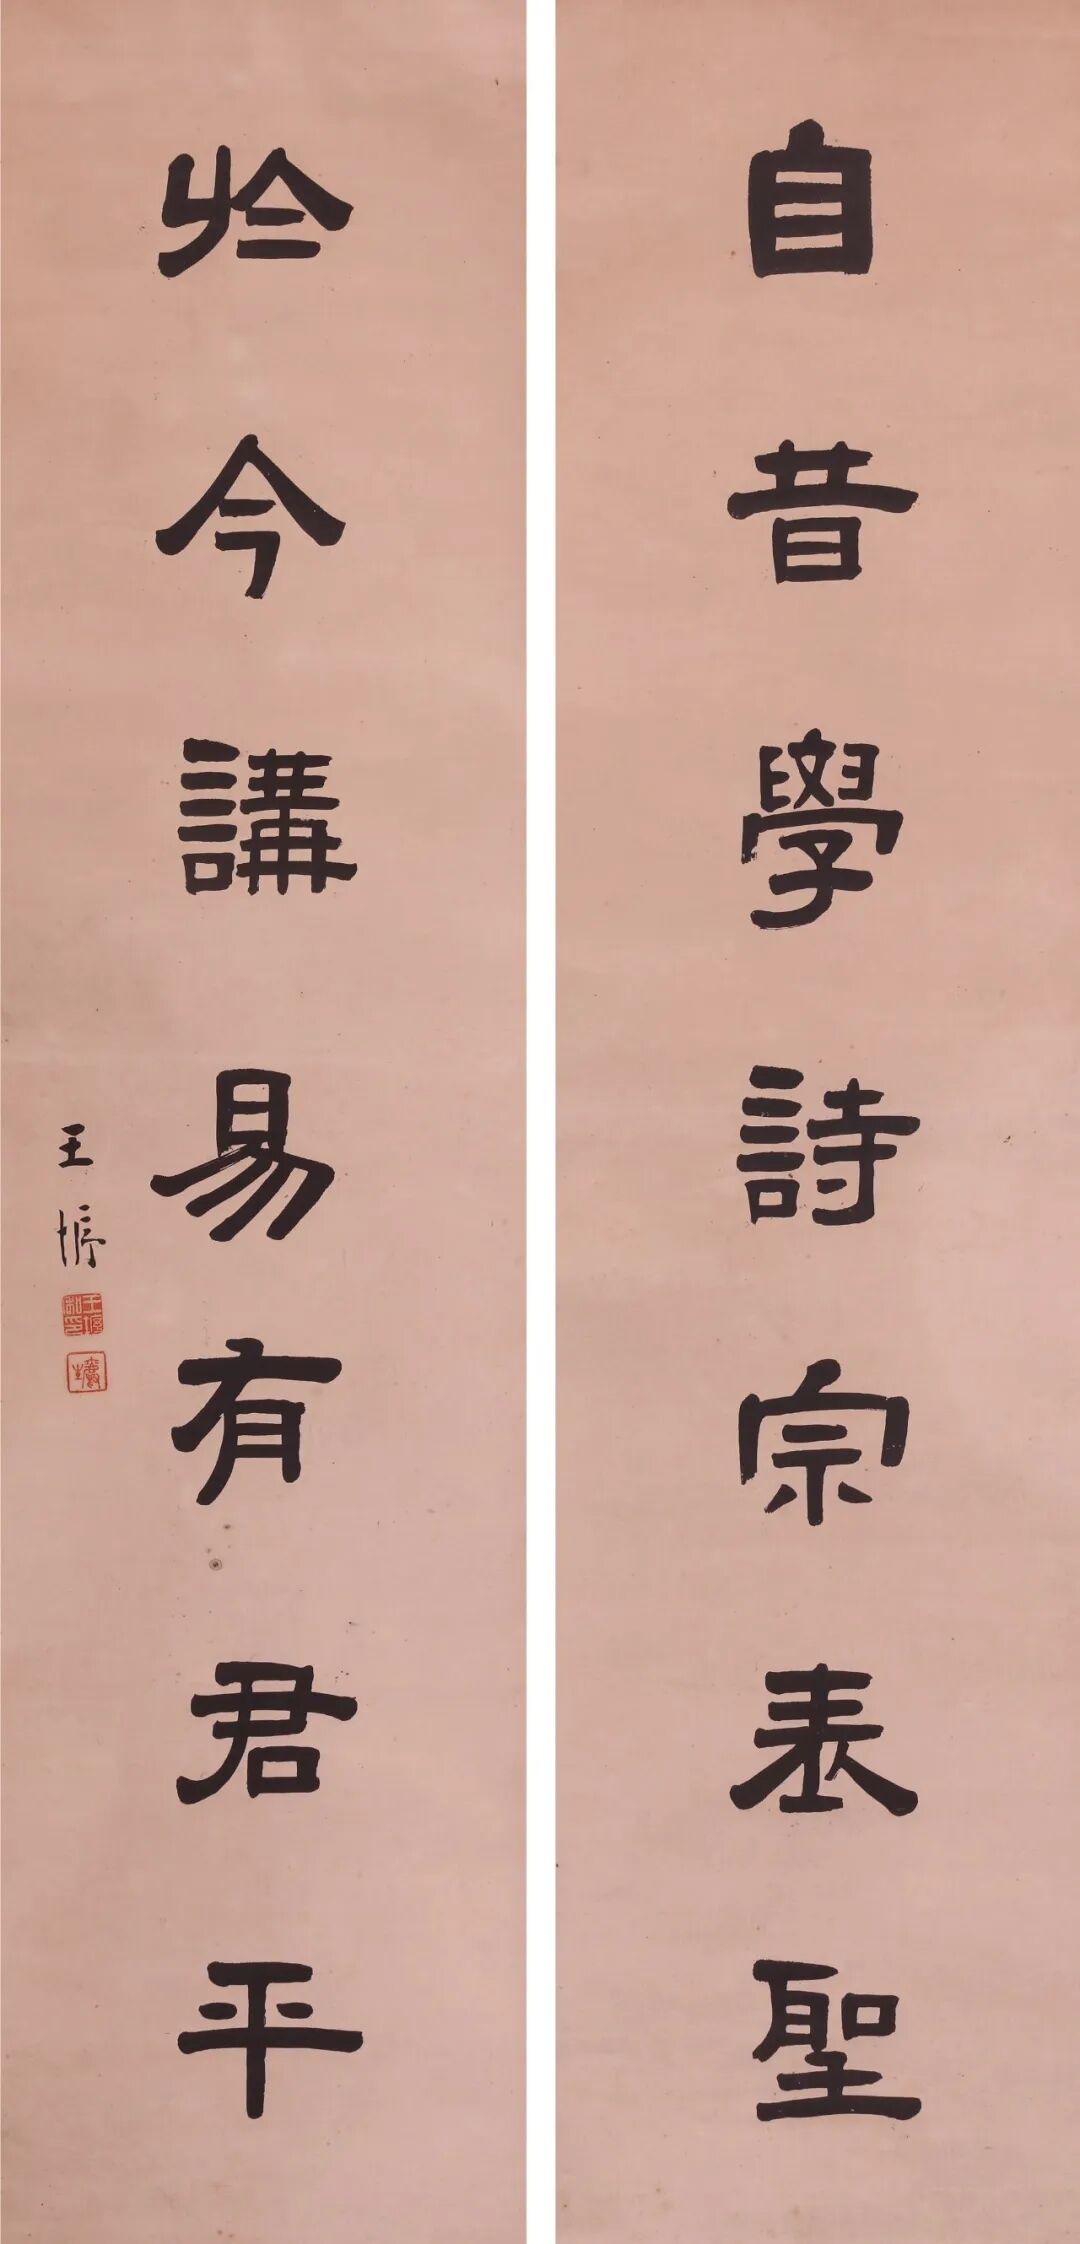 自昔學詩宗表聖
於今講易有君平
王㥄